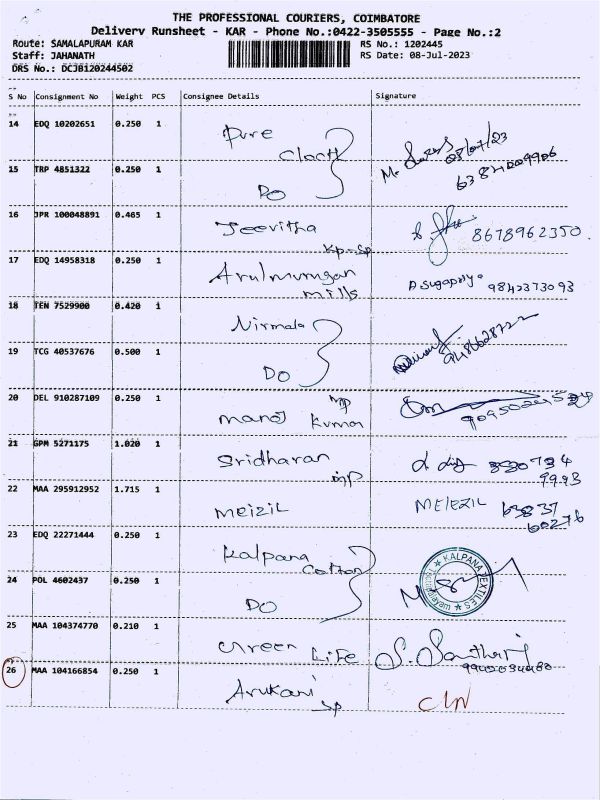 THE PROFESSIONAL COURIERS, COIMBATORE
Delivery Runsheet - KAR - Phone No.:0422-3505555 - Page No.:2
Route: SAMALAPURAM KAR RS No.: 1202445
Staff: JAHANATH RS Date: 08-Jul-2023
DRS No.: DCJB120244502
S No Consignment No Weight PCS Consignee Details Signature
14 EDQ 10202651 0.250 1 Pure
Cloath
15 TRP 4851322 0.250 1 Do
08/07/23
16 JPR 100048891 0.465 1 Jeevitha 8678962350.
17 EDQ 14958318 0.250 1 Arulmurugan
mills 9842373093
18 TEN 7529900 0.420 1 Nirmala
19 TCG 40537676 0.500 1 DO
20 DEL 910287109 0.250 1 manoj Kumar
21 GPM 5271175 1.020 1 Sridharan
mp
22 MAA 295912952 1.715 1 Meizil MEIEZIL 63837
60276
23 EDQ 22271444 0.250 1 Kalpana
Cotton
24 POL 4602437 0.250 1 DO
KALPANA TEXTILES
25 MAA 104374770 0.210 1 Green Life S. Santharj
26 MAA 104166854 0.250 1 Arukani
SP